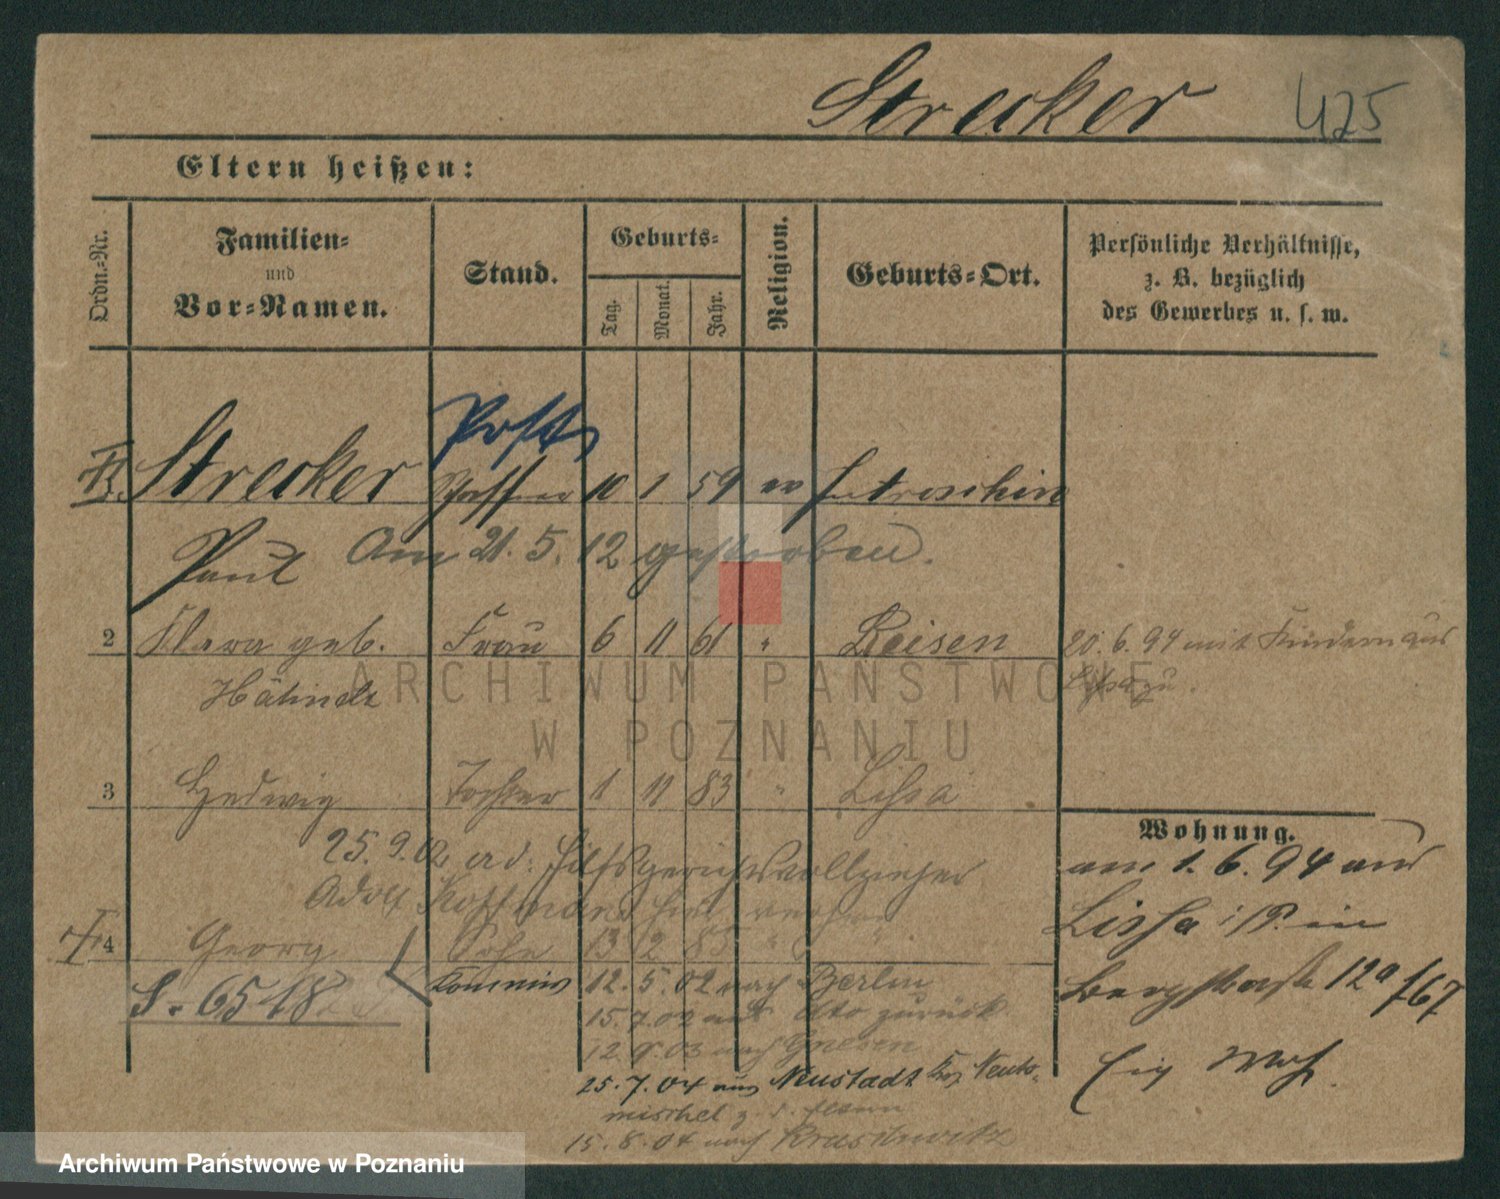 Strecker 425
Eltern heißen:
Ordn.-Nr.
Familien-
und
Vor-Namen.
Stand.
Geburts-
Tag.
Monat.
Jahr.
Religion.
Geburts-Ort.
Persönliche Verhältnisse,
z. B. bezüglich
des Gewerbes u. s. w.
Post
Strecker 10 1 59 ev
Paul Am 21. 5. 12 gestorben.
2 Klara geb. Frau 6 11 61 " Reisen 20. 6. 94 mit Kindern aus
Lissa zu.
3 Hedwig Tochter 1 11 83 " Lissa
25. 9. 02 Hilfsgerichtsvollzieher
Adolf
4 Georg Sohn 13 2 85 " "
S. 6518
Kommis 12. 5. 02 nach Berlin
15. 7. 02 aus dto zurück
12. 9. 03 nach Gnesen
25. 7. 04 aus Neustadt Neuto-
mischel z. d. Eltern
15. 8. 04 nach
Wohnung.
am 1. 6. 94 aus
Lissa i/P. in
Bergstraße 12a /67
ARCHIWUM PAŃSTWOWE
W POZNANIU
Archiwum Państwowe w Poznaniu